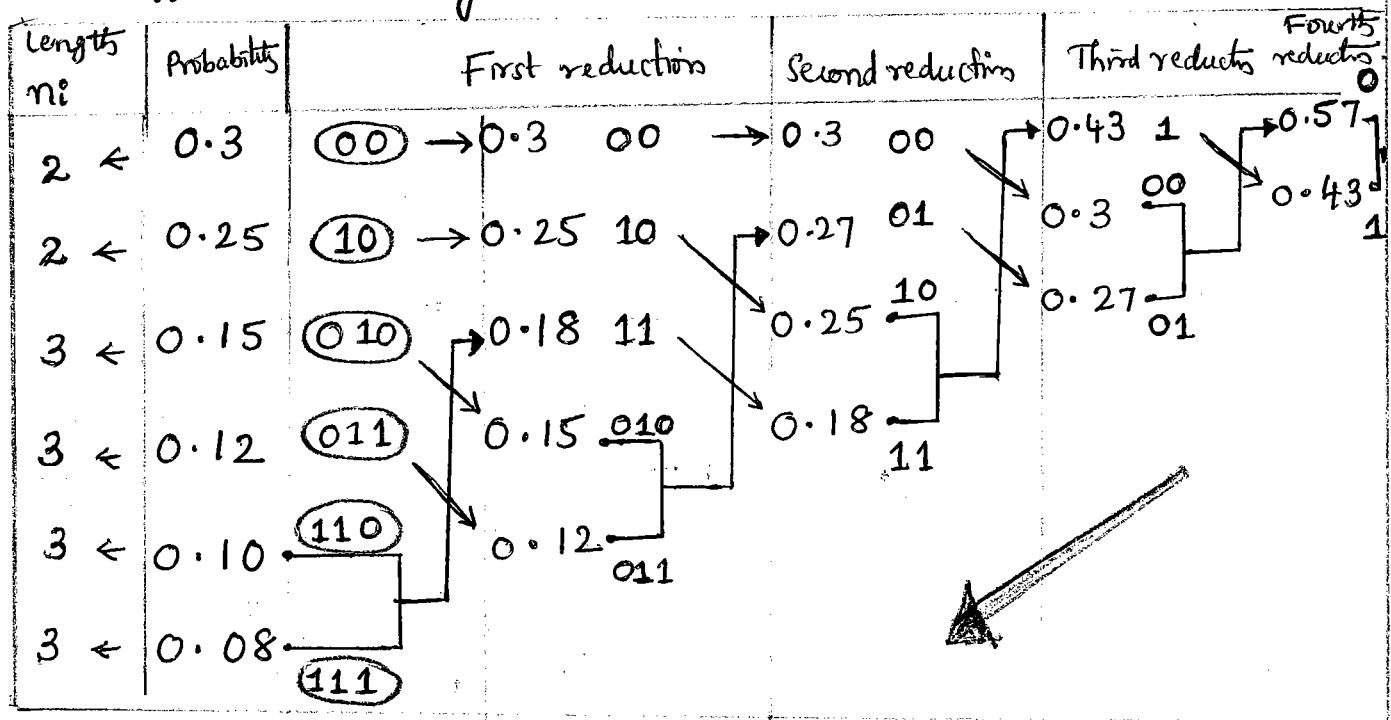 Length Probability First reduction Second reduction Third reductn Fourth reductn
ni 0
2 ← 0.3 00 → 0.3 00 → 0.3 00 0.43 1 0.57
00 0.43
0.3 1
2 ← 0.25 10 → 0.25 10 0.27 01
10 0.27
01
3 ← 0.15 010 0.18 11 0.25
3 ← 0.12 011 0.15 010 0.18
11
3 ← 0.10 110 0.12
011
3 ← 0.08
111